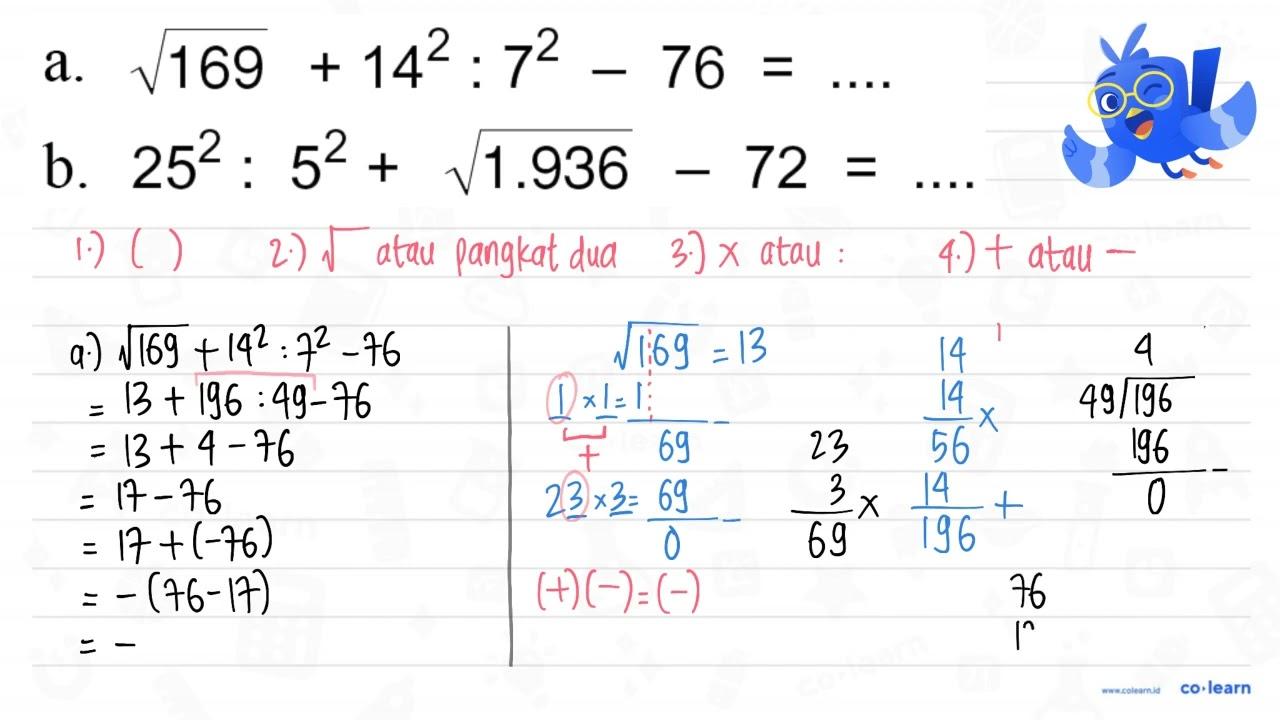 a. √169 + 14² : 7² – 76 = ....
b. 25² : 5² + √1.936 – 72 = ....
1.) ( ) 2.) √ atau pangkat dua 3.) x atau : 4.) + atau –
a.) √169 + 14² : 7² – 76
= 13 + 196 : 49 – 76
= 13 + 4 – 76
= 17 – 76
= 17 + (–76)
= – (76 – 17)
= –
√169 = 13
1 x 1 = 1 –
+ 69
23 x 3 = 69 –
0
(+)(–) = (–)
23
3 x
69
1
14
14 x
56
14 +
196
4
49/196
196 –
0
76
www.colearn.id co·learn